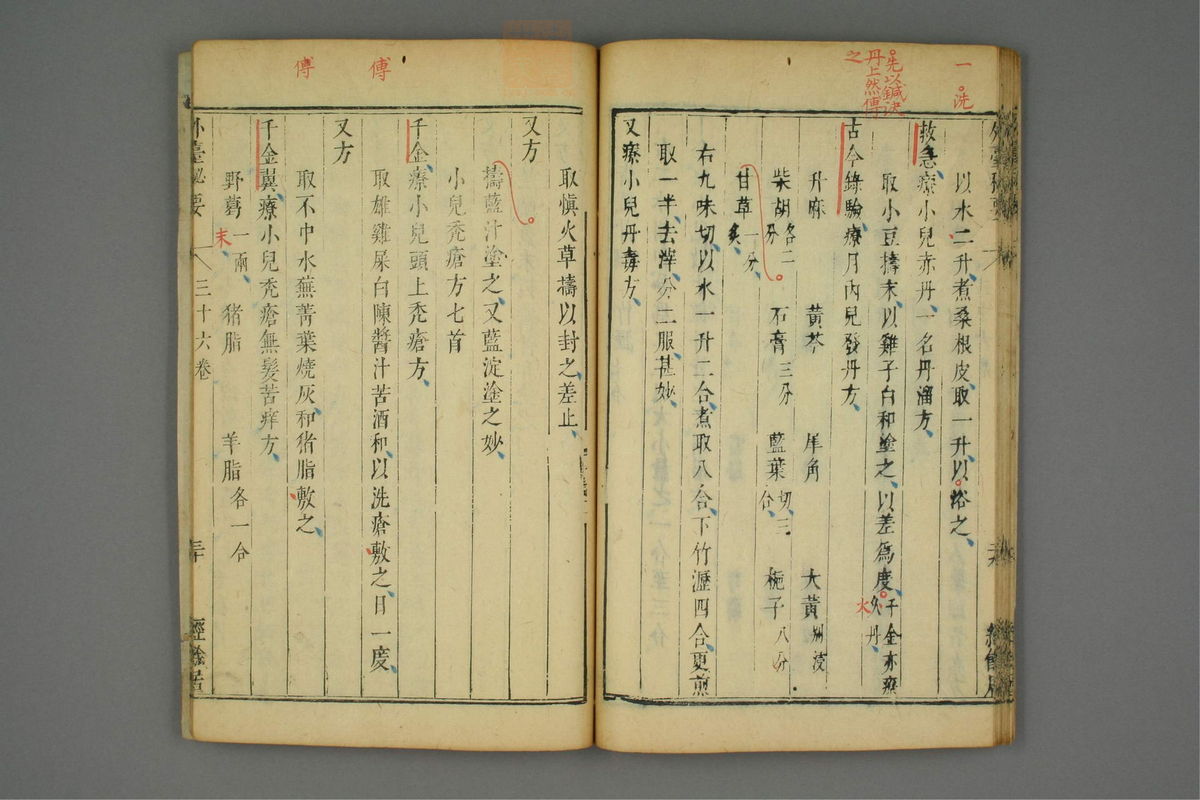 一洗
以水二升煮桑根皮取一升以浴之
救急療小兒赤丹一名丹溜方
取小豆擣末以雞子白和塗之以差爲度千金亦療
火丹
先以鍼決
丹上然傅
之
古今錄驗療月內兒發丹方
升麻 黃芩 犀角 大黃
柴胡各二分 石膏三分 藍葉切三合 梔子八分
甘草一分炙
右九味切以水一升二合煮取八合下竹瀝四合更煎
取一半去滓分二服甚妙
又療小兒丹毒方
取愼火草擣以封之差止
又方
擣藍汁塗之又藍淀塗之妙
小兒禿瘡方七首
千金療小兒頭上禿瘡方
傅
取雄雞屎白陳醬汁苦酒和以洗瘡敷之日一度
又方
傅
取不中水蕪菁葉燒灰和豬脂敷之
千金冀療小兒禿瘡無髮苦痒方
野葛一兩末 豬脂 羊脂各一合
外臺秘要 三十六卷 三十 經餘居